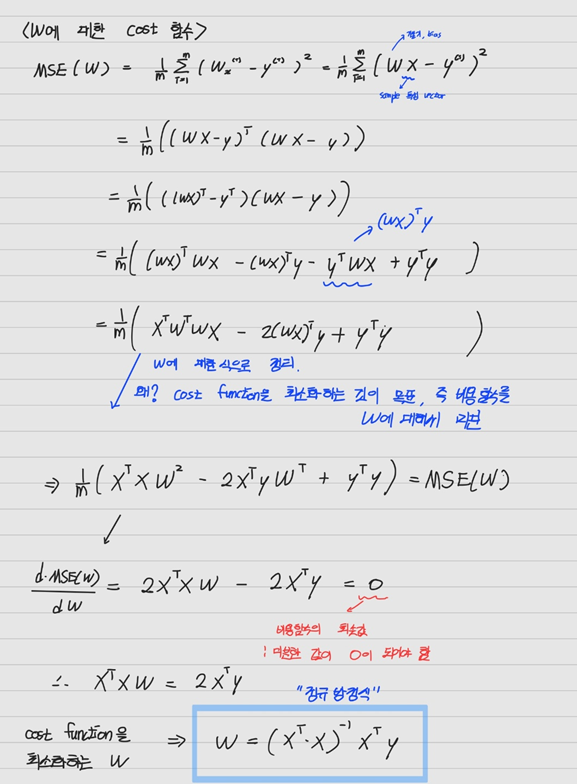 <W에 대한 cost 함수>
MSE(W) = 1/m Σ_{i=1}^{m} (W_x^{(i)} - y^{(i)})² = 1/m Σ_{i=1}^{m} (WX - y^{(i)})²
sample 특성 vector
= 1/m ((WX-y)^T (WX-y))
= 1/m (((WX)^T - y^T)(WX - y))
(WX)^T y
= 1/m ((WX)^T WX - (WX)^T y - y^T WX + y^T y)
= 1/m (X^T W^T WX - 2(WX)^T y + y^T y)
W에 대한 식으로 정리.
왜? cost function을 최소화하는 값이 목표, 즉 비용함수를
W에 대해서 미분
⇒ 1/m (X^T X W² - 2X^T y W^T + y^T y) = MSE(W)
d·MSE(W)/dW = 2X^T X W - 2X^T y = 0
비용함수의 최솟값
: 미분한 값이 0이 되어야 함
∴ X^T X W = 2X^T y
"정규 방정식"
cost function을
최소화하는 W ⇒ W = (X^T·X)^{-1} X^T y